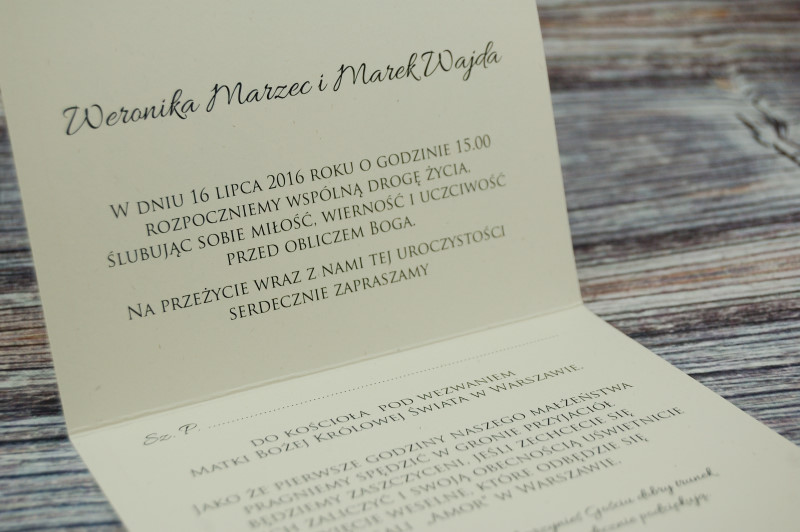 Weronika Marzec i Marek Wajda
W DNIU 16 LIPCA 2016 ROKU O GODZINIE 15.00
ROZPOCZNIEMY WSPÓLNĄ DROGĘ ŻYCIA,
ŚLUBUJĄC SOBIE MIŁOŚĆ, WIERNOŚĆ I UCZCIWOŚĆ
PRZED OBLICZEM BOGA.
NA PRZEŻYCIE WRAZ Z NAMI TEJ UROCZYSTOŚCI
SERDECZNIE ZAPRASZAMY
Sz. P. ........................................
DO KOŚCIOŁA POD WEZWANIEM
MATKI BOŻEJ KRÓLOWEJ ŚWIATA W WARSZAWIE.
JAKO ŻE PIERWSZE GODZINY NASZEGO MAŁŻEŃSTWA
PRAGNIEMY SPĘDZIĆ W GRONIE PRZYJACIÓŁ,
BĘDZIEMY ZASZCZYCENI, JEŚLI ZECHCECIE SIĘ
ZALICZYĆ I SWOJĄ OBECNOŚCIĄ UŚWIETNICIE
WESELNE, KTÓRE ODBĘDZIE SIĘ
„AMOR” W WARSZAWIE.
Gościu dobry trunek,